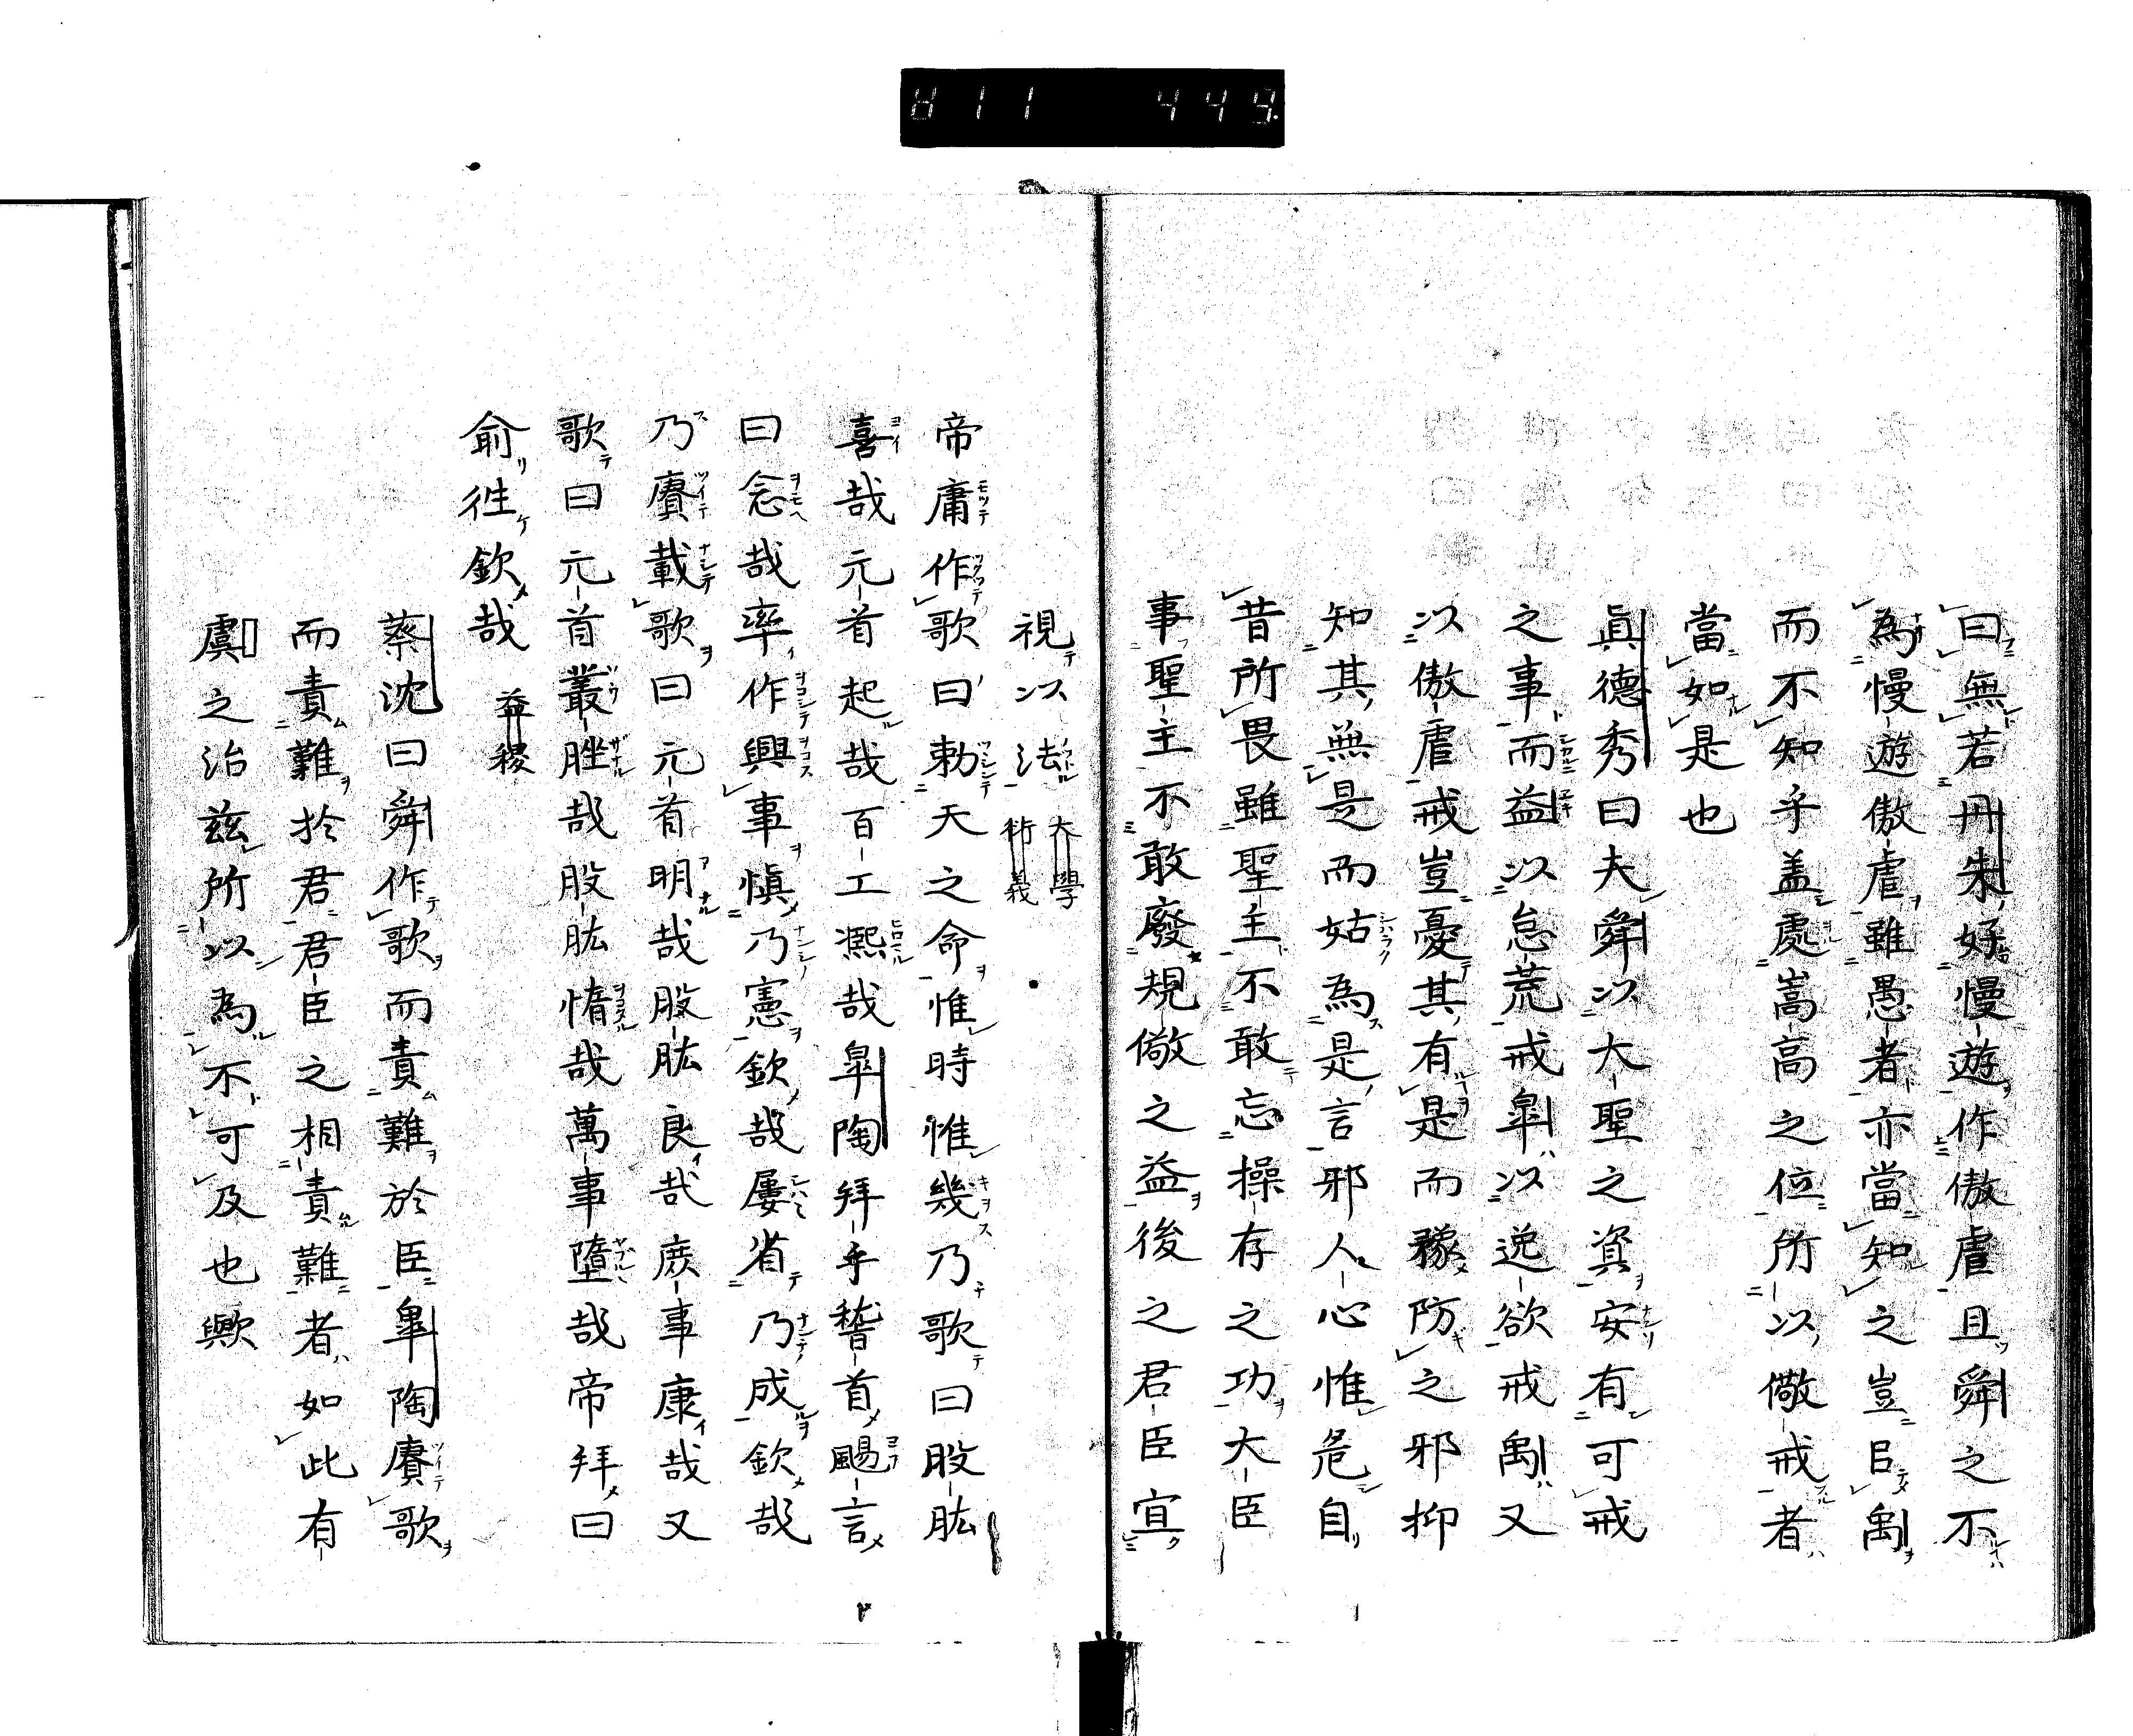 曰無若丹朱好慢遊作傲虐且舜之不
為慢遊傲虐雖愚者亦當知之豈㠯禹
而不知乎盖處嵩高之位所以儆戒者
當如是也
眞德秀曰夫舜以大聖之資安有可戒
之事而益以怠荒戒皐以逸欲戒禹又
以傲虐戒豈憂其有是而豫防之邪抑
知其無是而姑為是言邪人心惟危自
昔所畏雖聖主不敢忘操存之功大臣
事聖主不敢廢規儆之益後之君臣宜
視以法大學衍義
帝庸作歌曰勅天之命惟時惟幾乃歌曰股肱
喜哉元首起哉百工熈哉皐陶拜手稽首颺言
曰念哉率作興事慎乃憲欽哉屢省乃成欽哉
乃賡載歌曰元首明哉股肱良哉庶事康哉又
歌曰元首叢脞哉股肱惰哉萬事墮哉帝拜曰
俞往欽哉 益稷
蔡沈曰舜作歌而責難於臣皐陶賡歌
而責難於君君臣之相責難者如此有
虞之治茲所以為不可及也歟